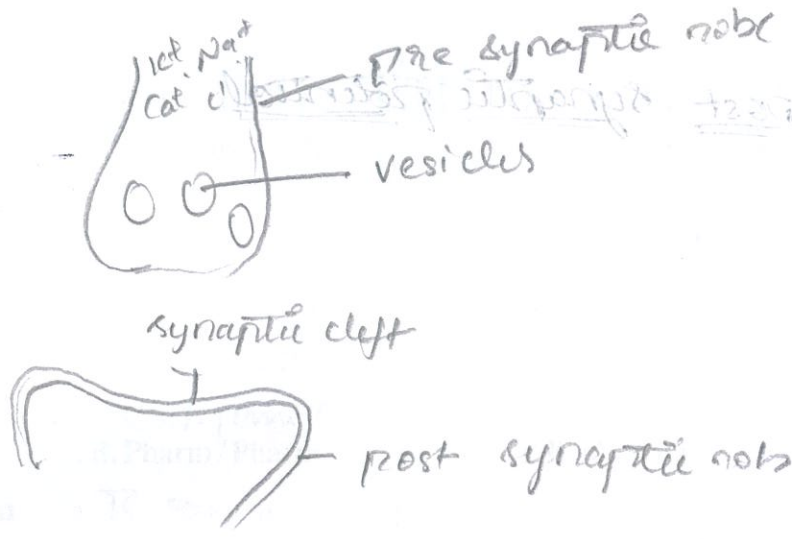 K+ Na+
pre synaptic nobe
Ca+ cl
vesicles
synaptic cleft
post synaptic nob